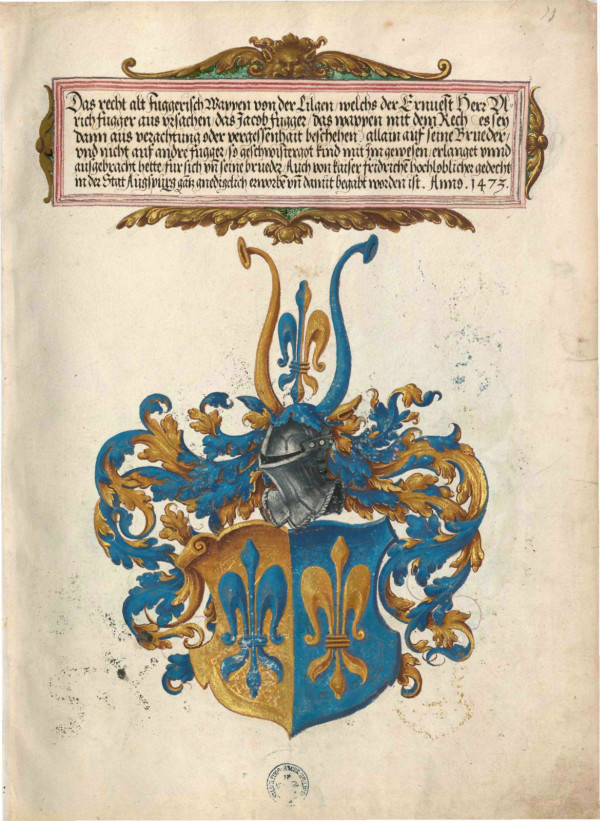 Das recht alt Fuggerisch Wappen von der Lilgen / welchs der Ernuest Herr Vl-
rich fugger aus vrsachen, das Jacob fugger / das wappen mit dem Rech / es sey
dann aus verachtung oder vergessenhait beschehen / allain auf seine Brueder /
vnd nicht auf andre fugger / so geschwistergot kind mit jm gewesen / erlanget vnnd
ausgebracht hette / fur sich vn̄ seine brueder / Auch von kaiser friderichē hochloblicher gedecht
in der Stat Augspurg gātz gnedigclich erworbē vn̄ damit begabt worden ist. Anno. 1473.